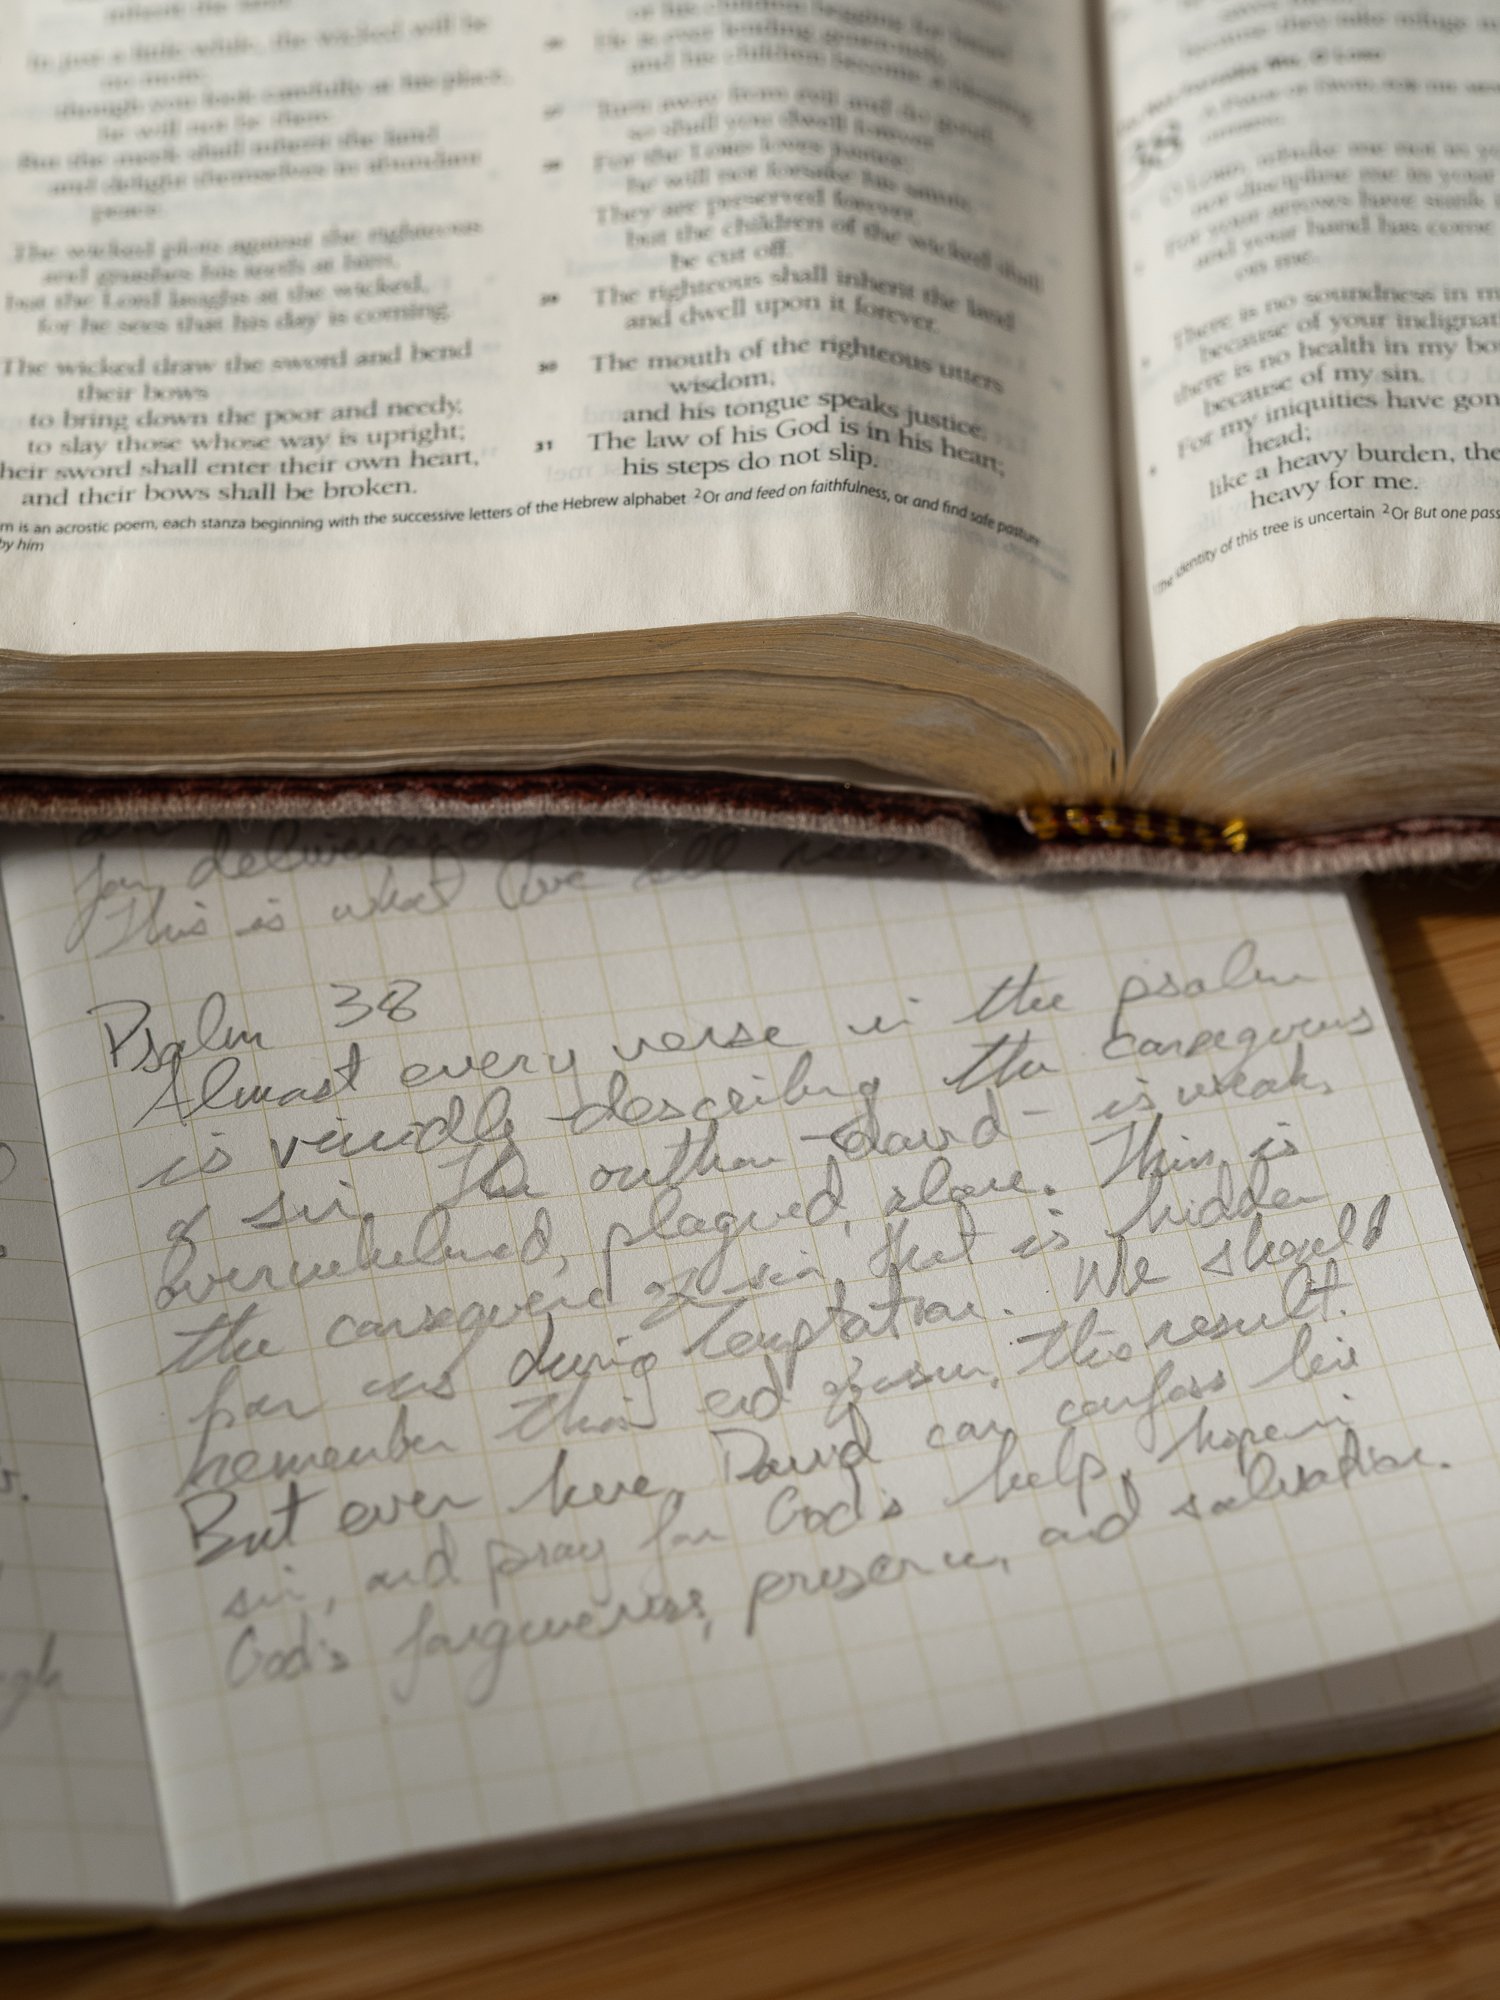 In just a little while, the wicked will be
no more;
though you look carefully at his place,
he will not be there.
But the meek shall inherit the land
and delight themselves in abundant
peace.
The wicked plots against the righteous
and gnashes his teeth at him,
but the Lord laughs at the wicked,
for he sees that his day is coming.
The wicked draw the sword and bend
their bows
to bring down the poor and needy,
to slay those whose way is upright;
heir sword shall enter their own heart,
and their bows shall be broken.
or his children begging for bread
26 He is ever lending generously,
and his children become a blessing
27 Turn away from evil and do good;
so shall you dwell forever
28 For the LORD loves justice;
he will not forsake his saints.
They are preserved forever,
but the children of the wicked shall
be cut off.
29 The righteous shall inherit the land
and dwell upon it forever.
30 The mouth of the righteous utters
wisdom,
and his tongue speaks justice.
31 The law of his God is in his heart;
his steps do not slip.
m is an acrostic poem, each stanza beginning with the successive letters of the Hebrew alphabet 2 Or and feed on faithfulness, or and find safe pasture
by him
because they take refuge in
Do Not Forsake Me, O LORD
38
O LORD, rebuke me not in yo
nor discipline me in your
For your arrows have sunk i
and your hand has come
on me.
There is no soundness in m
because of your indignati
there is no health in my bo
because of my sin.
For my iniquities have gon
head;
like a heavy burden, the
heavy for me.
1 The identity of this tree is uncertain 2 Or But one pass
for
This is what we all
Psalm 38
Almost every verse in the psalm
is vividly describing the consequences
of sin. The author -David- is weak,
overwhelmed, plagued, alone. This is
the consequence of sin that is hidden
from us during temptation. We should
remember this end of sin, this result.
But even here, David can confess his
sin, and pray for God's help, hope in
God's forgiveness, presence, and salvation.